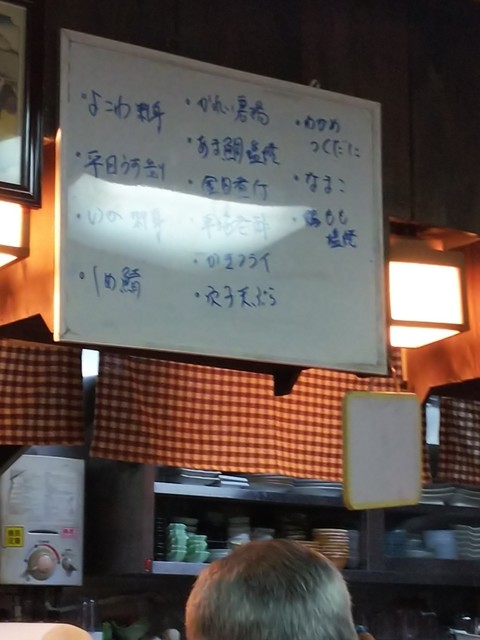 ・よこわ刺身
・平目うす造り
・いか 刺身
・しめ鯖
・かれい唐揚
・あま鯛塩焼
・金目煮付
・かきフライ
・穴子天ぷら
・わかめ
つくだに
・なまこ
・鶏もも
塩焼